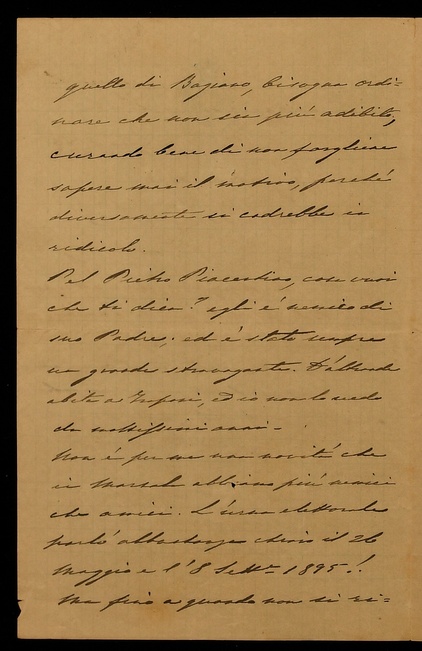 quello di Bajano, bisogna ordi=
nare che non sia più adibito,
curando bene di non fargliene
sapere mai il motivo, perché
diversamente si cadrebbe in
ridicolo.
Pel Pietro Piacentino, cosa vuoi
che ti dica? egli è nemico di
suo Padre; ed è stato sempre
un grande stravagante. D'altronde
abita a Trapani, ed io non lo vedo
da moltissimi anni-
Non è per me una novità che
in Marsala abbiamo più nemici
che amici. L'urna elettorale
parlò abbastanza chiaro il 26
Maggio e l'8 Sett.e 1895!
Ma fino a quando non si ri-